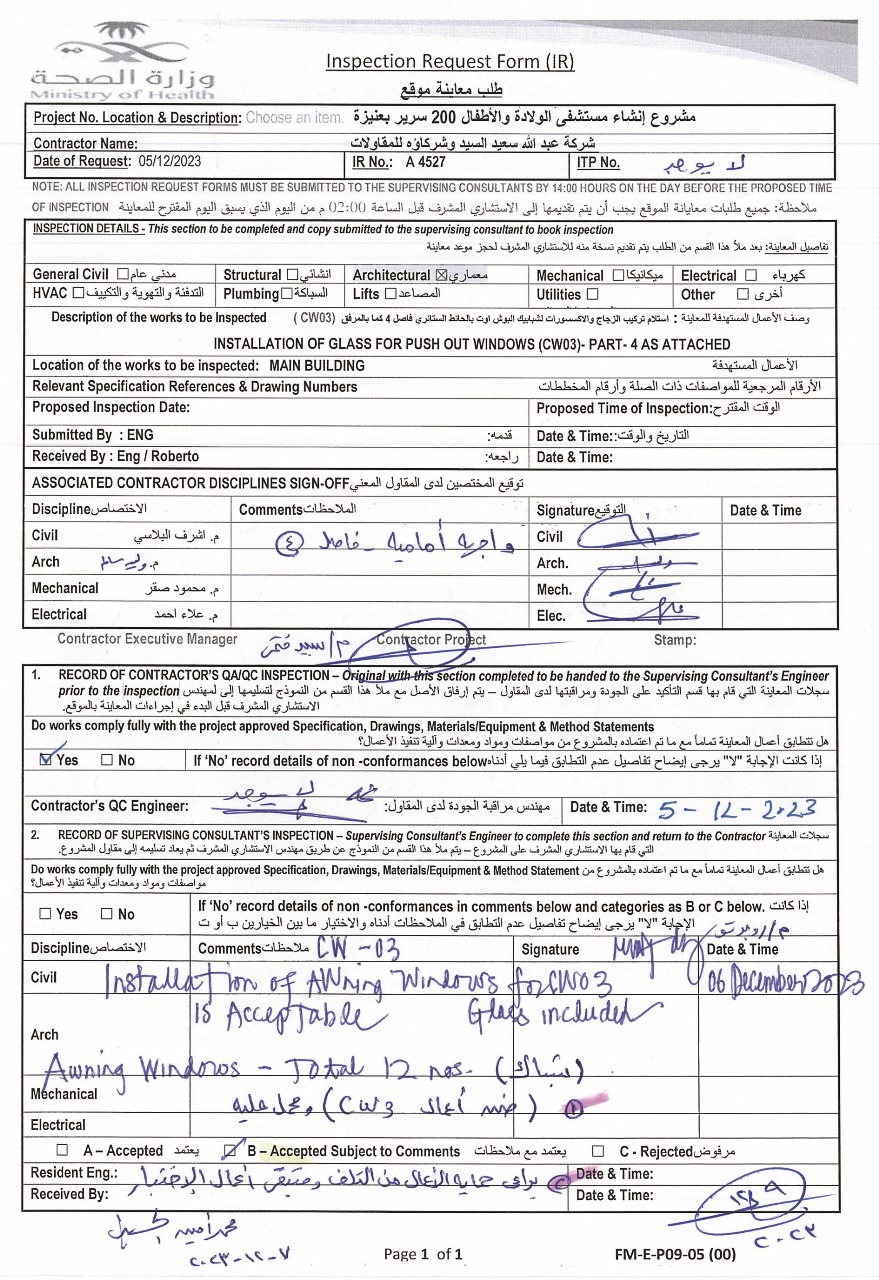 وزارة الصحة
Ministry of Health
Inspection Request Form (IR)
طلب معاينة موقع
Project No. Location & Description: Choose an item. مشروع إنشاء مستشفى الولادة والأطفال 200 سرير بعنيزة
Contractor Name: شركة عبد الله سعيد السيد وشركاؤه للمقاولات
Date of Request: 05/12/2023 IR No.: A 4527 ITP No. لا يوجد
NOTE: ALL INSPECTION REQUEST FORMS MUST BE SUBMITTED TO THE SUPERVISING CONSULTANTS BY 14:00 HOURS ON THE DAY BEFORE THE PROPOSED TIME
OF INSPECTION ملاحظة: جميع طلبات معايانة الموقع يجب أن يتم تقديمها إلى الاستشاري المشرف قبل الساعة 02:00 م من اليوم الذي يسبق اليوم المقترح للمعاينة
INSPECTION DETAILS - This section to be completed and copy submitted to the supervising consultant to book inspection
تفاصيل المعاينة: بعد ملأ هذا القسم من الطلب يتم تقديم نسخة منه للاستشاري المشرف لحجز موعد معاينة
General Civil ☐ مدني عام Structural ☐ انشائي Architectural ☒ معماري Mechanical ☐ ميكانيكا Electrical ☐ كهرباء
HVAC ☐ التدفئة والتهوية والتكييف Plumbing ☐ السباكة Lifts ☐ المصاعد Utilities ☐ Other ☐ أخرى
Description of the works to be Inspected وصف الأعمال المستهدفة للمعاينة : استلام تركيب الزجاج والاكسسورات لشبابيك البوش اوت بالحائط الستائري فاصل 4 كما بالمرفق (CW03)
INSTALLATION OF GLASS FOR PUSH OUT WINDOWS (CW03)- PART- 4 AS ATTACHED
Location of the works to be inspected: MAIN BUILDING الأعمال المستهدفة
Relevant Specification References & Drawing Numbers الأرقام المرجعية للمواصفات ذات الصلة وأرقام المخططات
Proposed Inspection Date: Proposed Time of Inspection: الوقت المقترح
Submitted By : ENG قدمه: Date & Time:: التاريخ والوقت
Received By : Eng / Roberto راجعه: Date & Time:
ASSOCIATED CONTRACTOR DISCIPLINES SIGN-OFF توقيع المختصين لدى المقاول المعني
Discipline الاختصاص Comments الملاحظات Signature التوقيع Date & Time
Civil م. اشرف البلاسي واجهه أمامية - فاصل ٤ Civil
Arch م. Arch.
Mechanical م. محمود صقر Mech.
Electrical م. علاء احمد Elec.
Contractor Executive Manager Contractor Project Stamp:
1. RECORD OF CONTRACTOR'S QA/QC INSPECTION – Original with this section completed to be handed to the Supervising Consultant's Engineer
prior to the inspection سجلات المعاينة التي قام بها قسم التأكيد على الجودة ومراقبتها لدى المقاول – يتم إرفاق الأصل مع ملأ هذا القسم من النموذج لتسليمها إلى لمهندس
الاستشاري المشرف قبل البدء في إجراءات المعاينة بالموقع.
Do works comply fully with the project approved Specification, Drawings, Materials/Equipment & Method Statements
هل تتطابق أعمال المعاينة تماماً مع ما تم اعتماده بالمشروع من مواصفات ومواد ومعدات وآلية تنفيذ الأعمال؟
☑ Yes ☐ No If 'No' record details of non -conformances below إذا كانت الإجابة "لا" يرجى إيضاح تفاصيل عدم التطابق فيما يلي أدناه
لا يوجد
Contractor's QC Engineer: مهندس مراقبة الجودة لدى المقاول: Date & Time: 5-12-2023
2. RECORD OF SUPERVISING CONSULTANT'S INSPECTION – Supervising Consultant's Engineer to complete this section and return to the Contractor سجلات المعاينة
التي قام بها الاستشاري المشرف على المشروع – يتم ملأ هذا القسم من النموذج عن طريق مهندس الاستشاري المشرف ثم يعاد تسليمه إلى مقاول المشروع.
Do works comply fully with the project approved Specification, Drawings, Materials/Equipment & Method Statement هل تتطابق أعمال المعاينة تماماً مع ما تم اعتماده بالمشروع من
مواصفات ومواد ومعدات وآلية تنفيذ الأعمال؟
☐ Yes ☐ No If 'No' record details of non -conformances in comments below and categories as B or C below. إذا كانت
الإجابة "لا" يرجى إيضاح تفاصيل عدم التطابق في الملاحظات أدناه والاختيار ما بين الخيارين ب أو ت
م/روبرتو
Discipline الاختصاص Comments ملاحظات CW-03 Signature Date & Time
Civil Installation of AWning Windows for CW03 06 December 2023
is Acceptable Glass included
Arch
Awning Windows - Total 12 nos. (شباك)
Mechanical (ضمن أعمال CW3) ومحمل عليه
Electrical
☐ A – Accepted يعتمد ☑ B – Accepted Subject to Comments يعتمد مع ملاحظات ☐ C - Rejected مرفوض
Resident Eng.: يراعى حماية الأعمال من التلف ومتبقى أعمال الإختبار Date & Time:
Received By: Date & Time: ١٢/٩
٢٠٢٣
٢٠٢٣-١٢-٧
Page 1 of 1 FM-E-P09-05 (00)